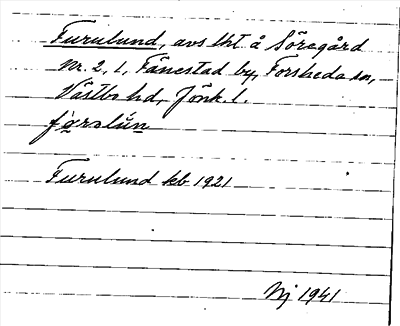 Furulund, avs lht å Söregård
nr. 2, 1, Fånestad by, Forsheda sn,
Västbo hd, Jönk. l.
Furulund kb 1921
Nj 1941